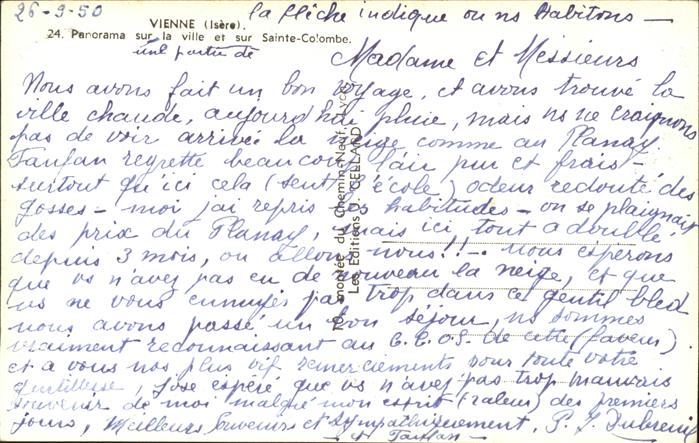 26-9-50
la flèche indique ou ns habitons —
VIENNE (Isère).
24. Panorama sur la ville et sur Sainte-Colombe.
une partie de
Madame et Messieurs
Nous avons fait un bon voyage, et avons trouvé la
ville chaude, aujourd'hui pluie, mais ns ne craignons
pas de voir arriver la neige comme au Planay
Fanfan regrette beaucoup l'air pur et frais -
surtout qu'ici cela (sent l'école) odeur redouté des
gosses - moi j'ai repris nos habitudes - on se plaignait
des prix du Planay, mais ici tout a doublé
depuis 3 mois, ou allons nous!! - nous espérons
que vs n'avez pas eu de nouveau la neige, et que
vs ne vous ennuyez pas trop dans ce gentil bled
nous avons passé un bon séjour ns sommes
vraiment reconnaissant au C.E.O.S. de cette (faveur)
et a vous nos plus vif remerciements pour toute votre
gentillesse, j'ose espéré que vs n'avez pas trop mauvais
souvenir de moi malgré mon esprit (raleur) des premiers
jours, Meilleurs Souvenirs et sympathiquement, P. J. Dubreuil
et Fanfan -
10, montée du Chemin-Neuf, Lyon
Les Editions J. CELLARD